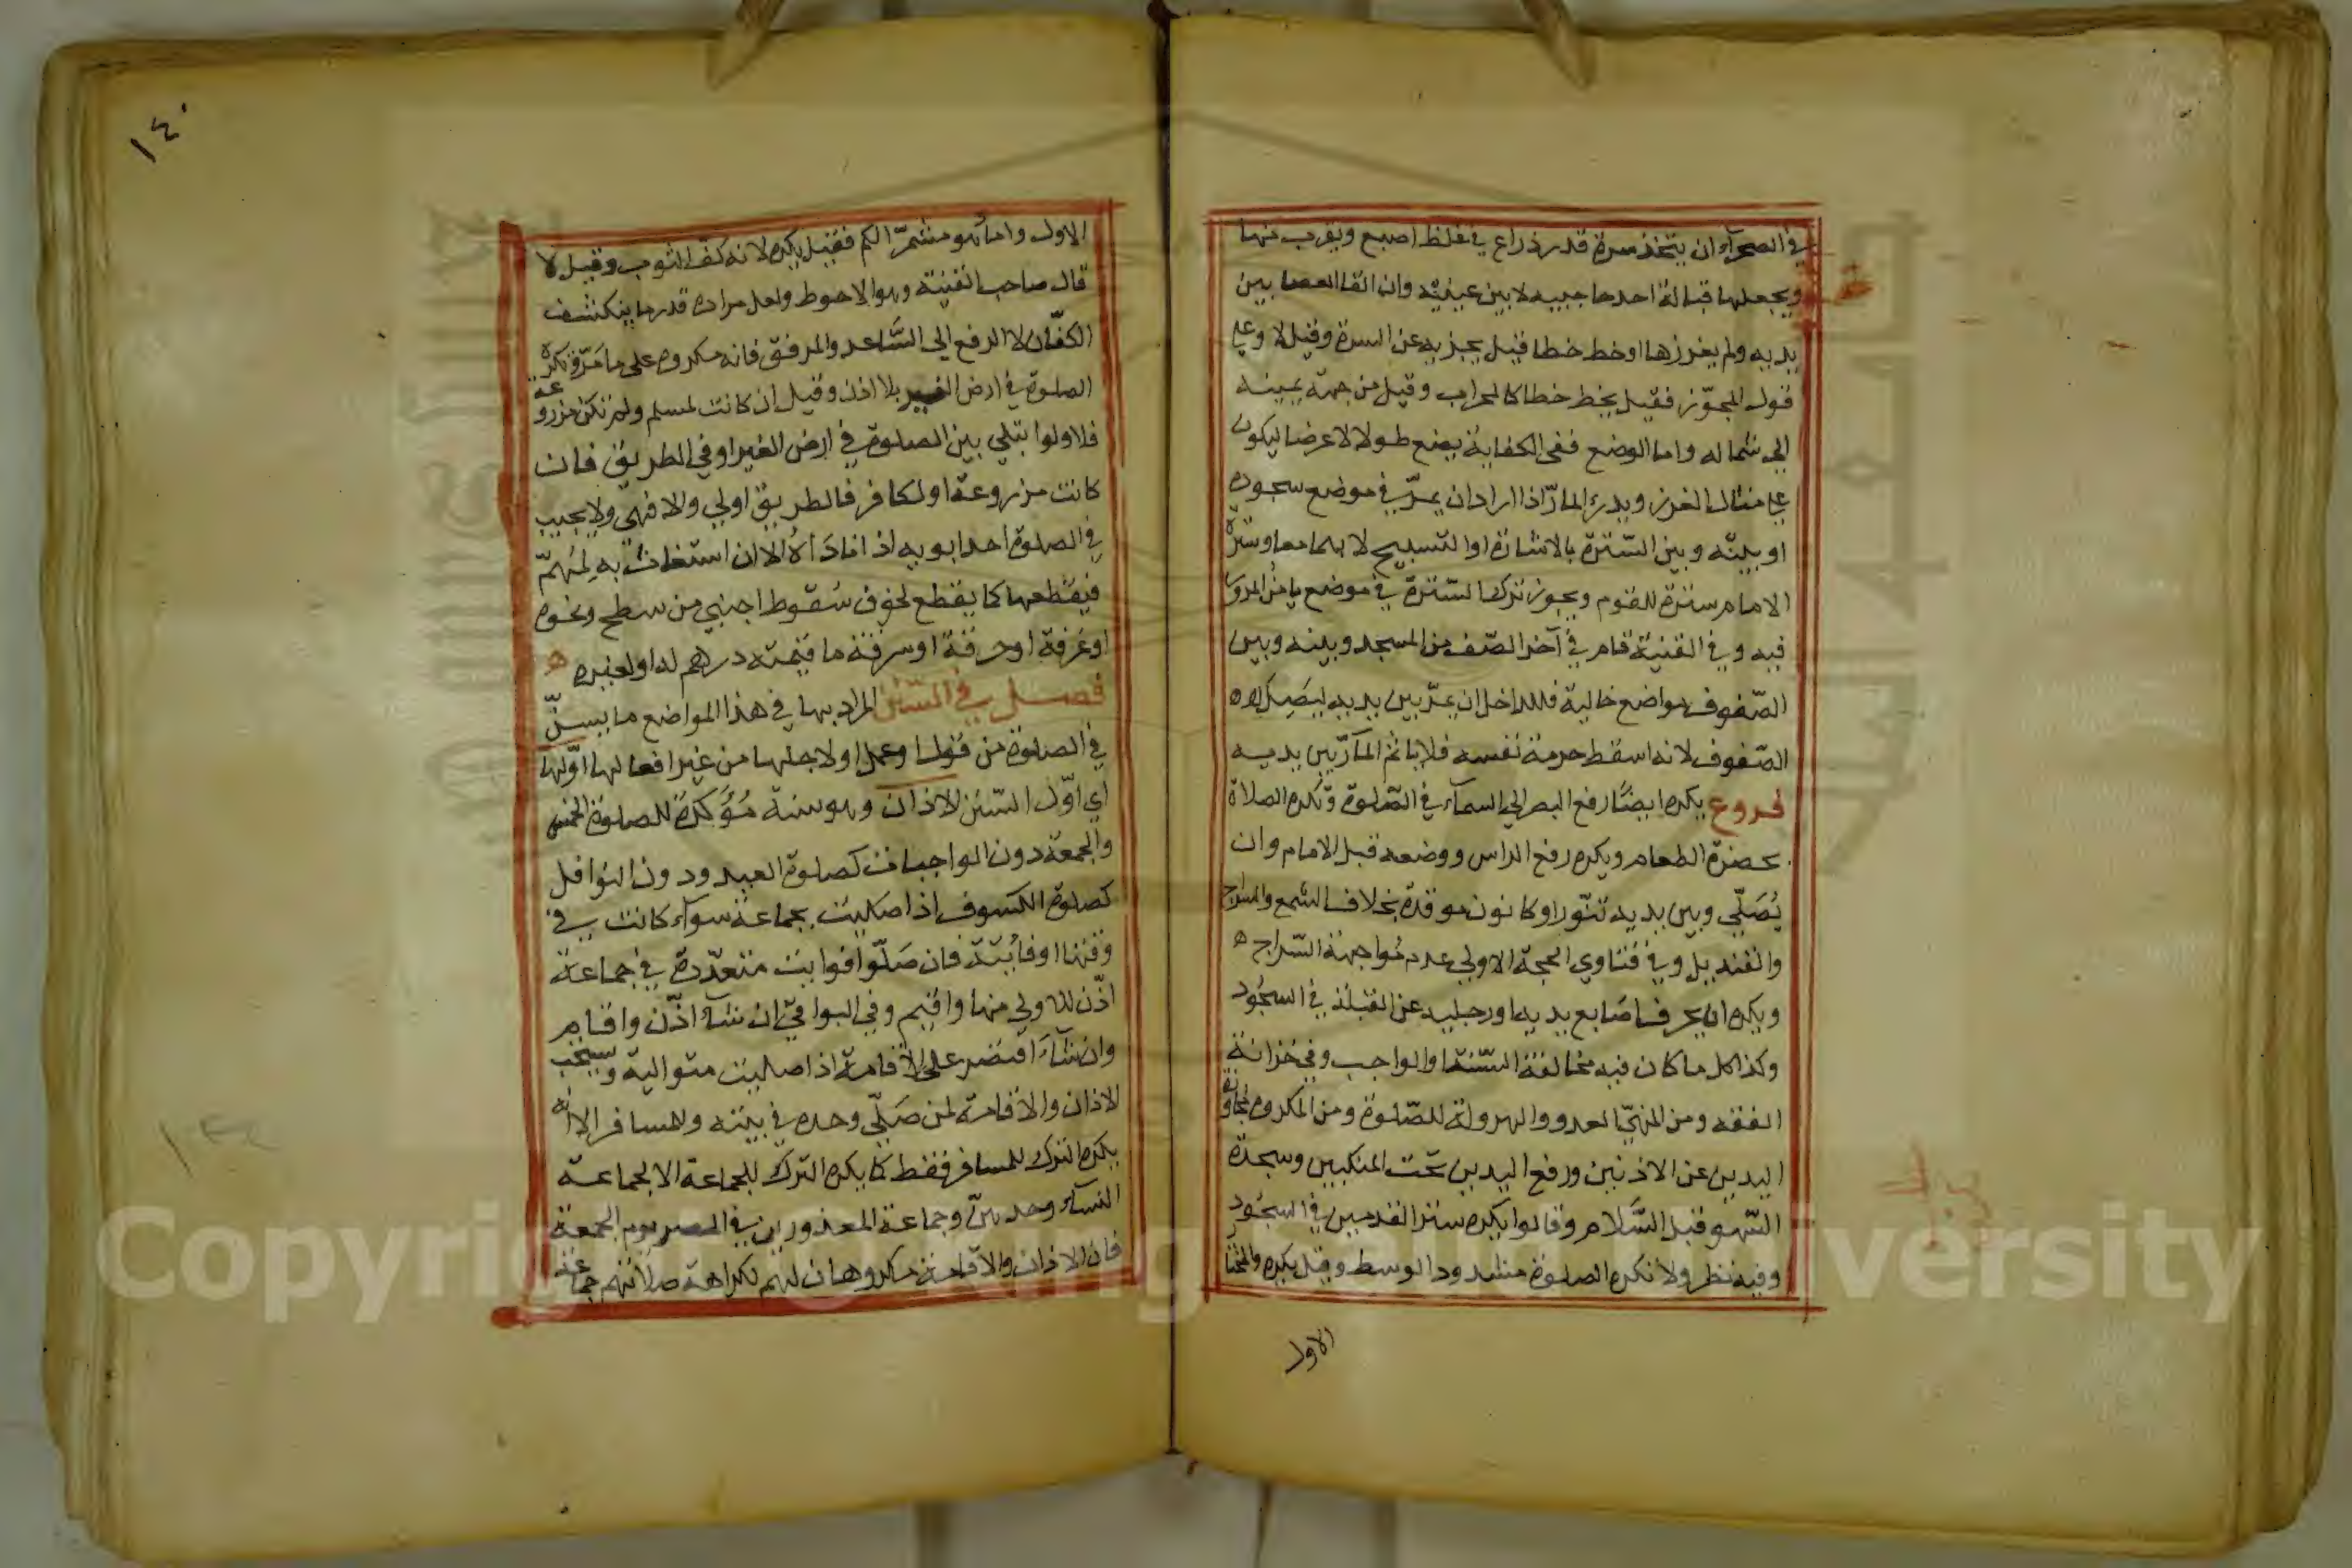 في الصحرآء ان يتخذ سترة قدر ذراع في غلظ اصبع ويقرب منها
ويجعلها قبالة احد حاجبيه لا بين عينيه وان القا العصا بين
يديه ولم يغرزها او خط خطا قيل يجزيه عن السترة وقيل لا وعلى
قول المجوّز فقيل يخط خطا كالمحراب وقيل من جهة يمينه
الى شماله واما الوضع ففى الكفاية يضع طولا لا عرضا ليكون
على مثال الغرز ويدرء المارّ اذا اراد ان يمرّ في موضع سجوده
او بينه وبين السّترة بالاشارة او التسبيح لا بهما معا وسترة
الامام سترة للقوم ويجوز ترك السّترة في موضع يامن المرور
فيه وفي القنية قام في آخر الصّف من المسجد وبينه وبين
الصّفوف مواضع خالية فللداخل ان يمرّ بين يديه ليصل
الصّفوف لانه اسقط حرمة نفسه فلا ياثم المآرّ بين يديه
فروع يكره ايضًا رفع البصر الى السمآء في الصّلوة وتكره الصلاة
بحضرة الطعام ويكره رفع الراس ووضعه قبل الامام وان
يُصَلّي وبين يديه تنّور او كانون موقدة بخلاف الشمع والسراج
والقنديل وفي فتاوي الحجة الاولى عدم مُواجهة السّراج ه
ويكره ان يحرف اصَابع يديه او رجليه عن القبلة في السجُود
وكذا كل ما كان فيه مخالفة السّنة او الواجب وفي خزانة
الفقه ومن المنهيّ العدو والهرولة للصّلوة ومن المكروه مجاوزة
اليدين عن الاذنين ورفع اليدين تحت المنكبين وسجدة
السّهو قبل السَّلام وقالوا يكره ستر القدمين في السجُود
وفيه نظر ولا تكره الصلوة مشدود الوسط وقيل يكره والمختار
الاول
١٤٠
الاول واما لو مشمّر الكم فقيل يكره لانه كفّ الثوب وقيل لا
قال صاحب القنية وهو الاحوط ولعل مراده قدر ما ينكشف
الكفّان لا الرفع الى السَّاعد والمرفق فانه مكروه على ما مَرّ وتكره
الصلوة في ارض الغير بلا اذن وقيل ان كانت لمسلم ولم تكن مزروعة
فلا ولو ابتلي بين الصلوة في ارض الغير او في الطريق فان
كانت مزروعة او لكافر فالطريق اولي والا فهي ولا يجيب
في الصلوة احد ابويه اذا نادَاهُ الا ان استغاث به لمُهمّ
فيقطعها كما يقطع لخوف سُقوط اجنبي من سطح ونحوه
او غرقة او حرقة او سرقة ما قيمته درهم له او لغيره ه
فصــل في السّنن المراد بها في هذا المواضع ما يسنّ
في الصلوة من قول وعمل او لاجلها من غير افعالها اوّلها
اي اوّل السّنن الاذان وهو سنة مُؤَكدة للصلوة الخمس
والجمعة دون الواجبات كصلوة العيد ودون النوافل
كصلوة الكسوف اذا صليت بجماعة سوآء كانت في
وقتها او فائتة فان صَلّوا فوايت متعدّدة في جماعة
اذّن للاولي منها واقيم وفي البواقي ان شآء اذّن واقام
وان شآء اقتصر على الاقامة اذا صليت متوالية ويستحب
الاذان والاقامة لمن صَلّي وحده في بيته وللمسافر الا انه
يكره الترك للمسافر فقط كما يكره الترك للجماعة الا لجماعة
النسآء وحدهنّ وجماعة المعذورين في المصر يوم الجمعة
فان الاذان والاقامة مكروهان لهم لكراهة صلاتهم جماعة
Copyright © King Saud University